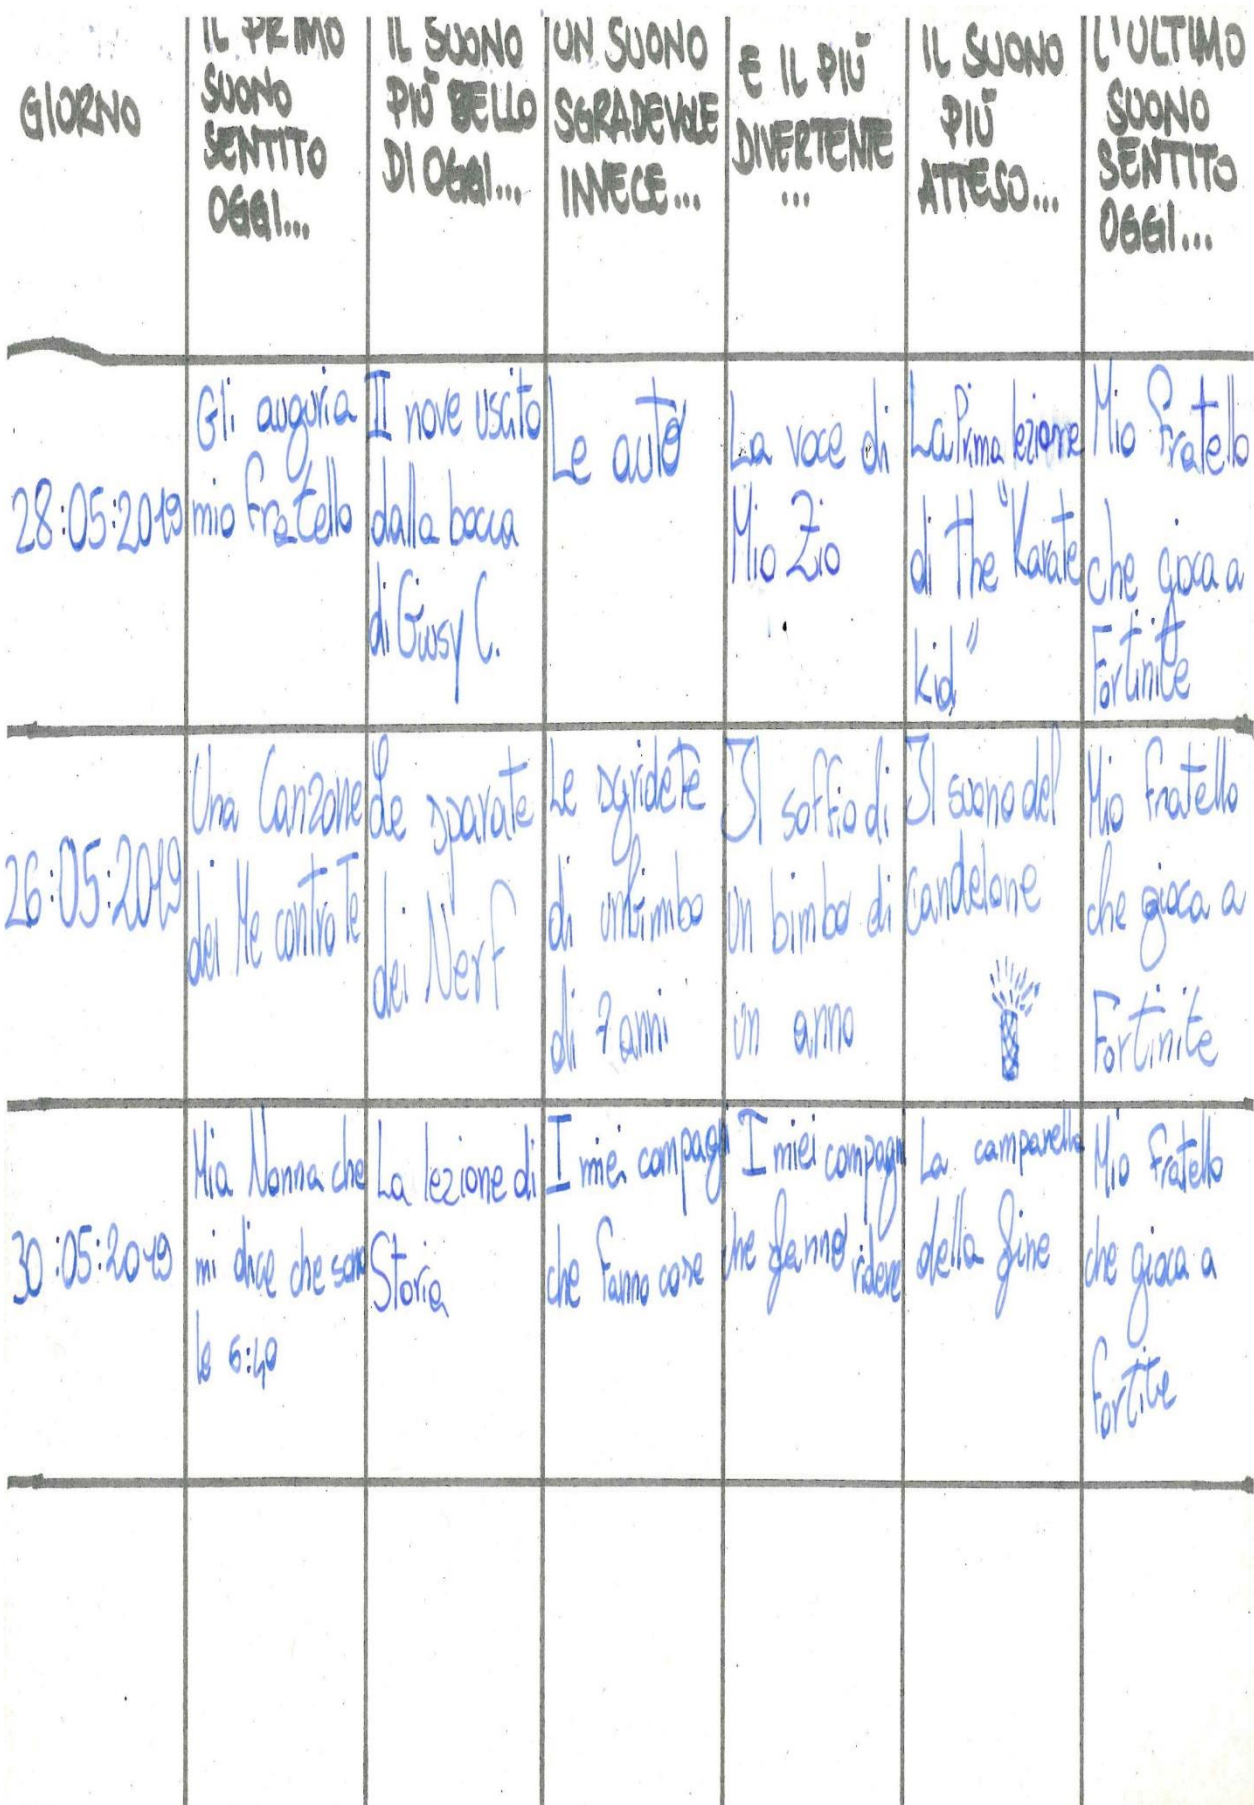 GIORNO
IL PRIMO
SUONO
SENTITO
OGGI...
IL SUONO
PIÙ BELLO
DI OGGI...
UN SUONO
SGRADEVOLE
INVECE...
E IL PIÙ
DIVERTENTE
...
IL SUONO
PIÙ
ATTESO...
L'ULTIMO
SUONO
SENTITO
OGGI...
28:05:2019
Gli auguri a
mio fratello
Il nove uscito
dalla bocca
di Giusy C.
Le auto
La voce di
Mio Zio
La Prima lezione
di the "Karate
kid"
Mio fratello
che gioca a
Fortinite
26:05:2019
Una Canzone
dei Me contro Te
Le sparate
dei Nerf
Le sgridete
di un bimbo
di 7 anni
Il soffio di
un bimbo di
un anno
Il suono del
candelone
Mio fratello
che gioca a
Fortinite
30:05:2019
Mia Nonna che
mi dice che sono
le 6:40
La lezione di
Storia
I miei compagni
che fanno cose
I miei compagni
che fanno ridere
La campanella
della fine
Mio fratello
che gioca a
fortite